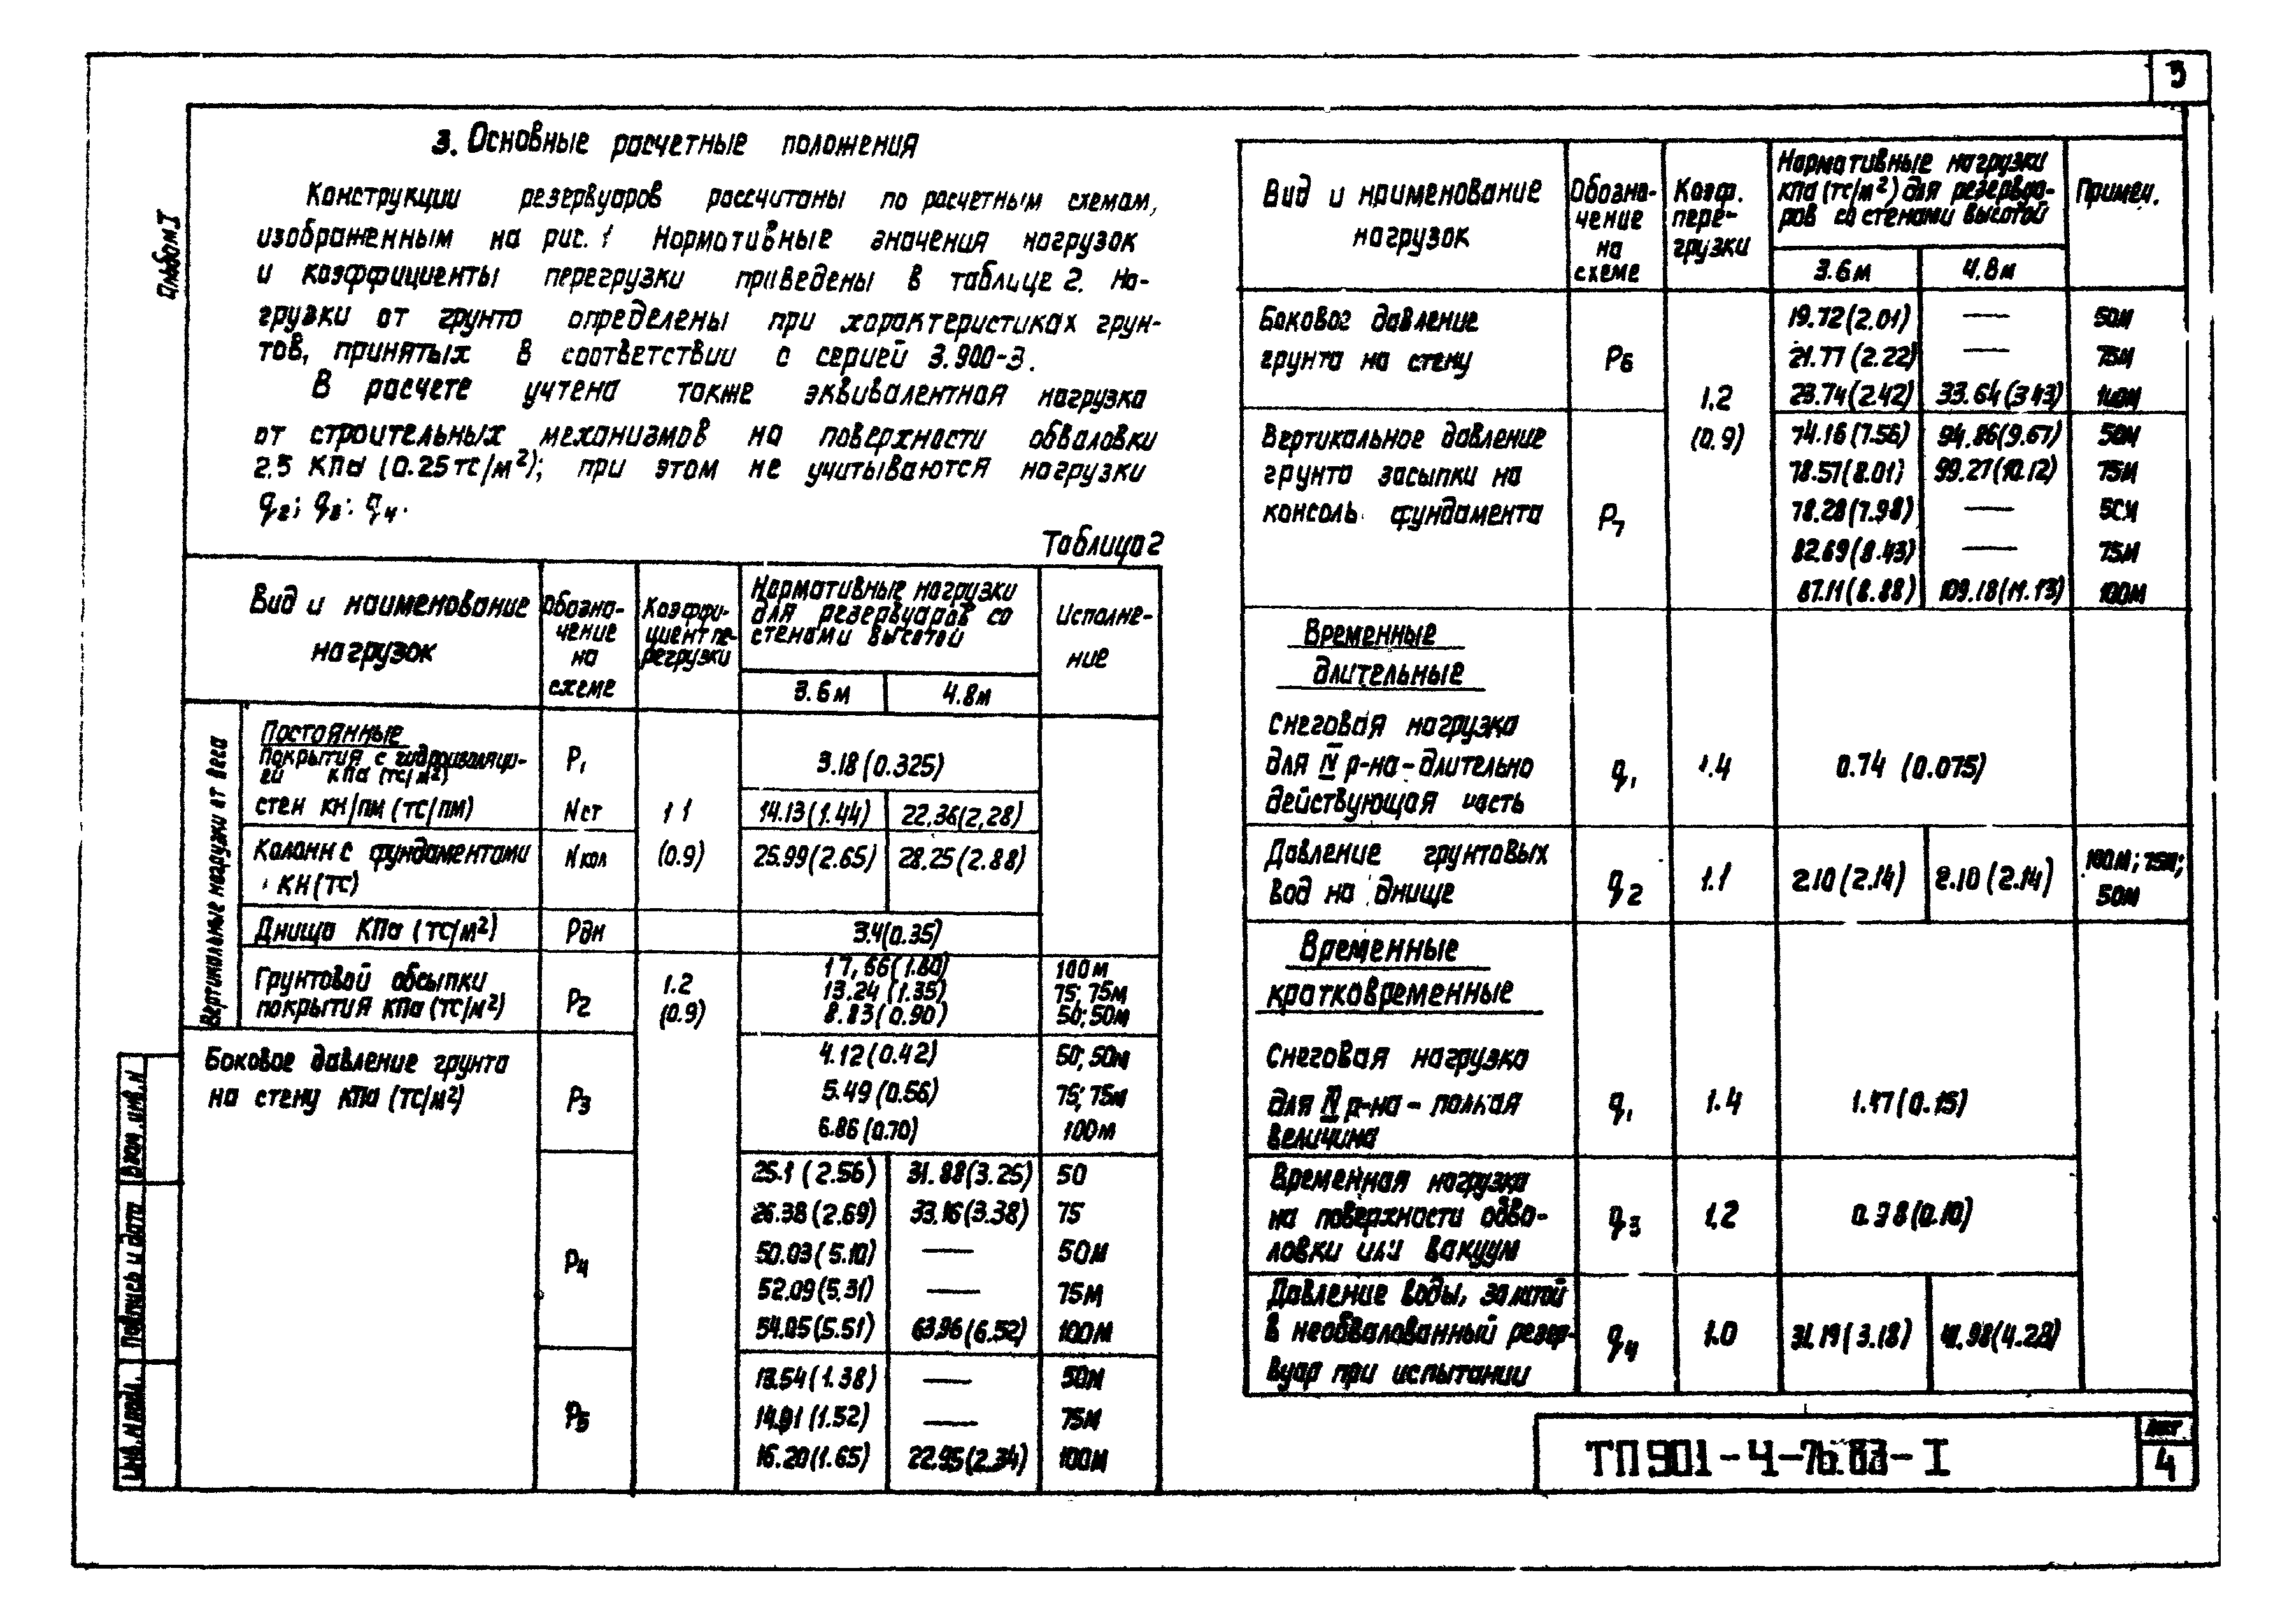 5
Альбом I
3. Основные расчетные положения
Конструкции резервуаров рассчитаны по расчетным схемам,
изображенным на рис. 1 Нормативные значения нагрузок
и коэффициенты перегрузки приведены в таблице 2. На-
грузки от грунта определены при характеристиках грун-
тов, принятых в соответствии с серией 3.900-3.
В расчете учтена также эквивалентная нагрузка
от строительных механизмов на поверхности обваловки
2.5 КПа (0.25 тс/м²); при этом не учитываются нагрузки
q2; q3; q4.
Таблица 2
Вид и наименование нагрузок
Обозна-
чение
на
схеме
Коэффи-
циент пе-
регрузки
Нормативные нагрузки
для резервуаров со
стенами высотой
3.6м 4.8м
Исполне-
ние
Вертикальные нагрузки от веса
Постоянные
покрытия с гидроизоляци-
ей кПа (тс/м²) P1 3.18 (0.325)
стен кН/пм (тс/пм) Nст 1 1 14.13 (1.44) 22.36 (2,28)
Колонн с фундаментами Nкол (0.9) 25.99 (2.65) 28.25 (2.88)
кН (тс)
Днища КПа (тс/м²) Pдн 3.4 (0.35)
Грунтовой обсыпки
покрытия кПа (тс/м²) P2 1.2
(0.9)
17,66 (1.80) 100м
13.24 (1.35) 75; 75м
8.83 (0.90) 50; 50м
Боковое давление грунта
на стену кПа (тс/м²) P3
4.12 (0.42) 50; 50м
5.49 (0.56) 75; 75м
6.86 (0.70) 100м
P4
25.1 (2.56) 31.88 (3.25) 50
26.38 (2.69) 33.16 (3.38) 75
50.03 (5.10) — 50м
52.09 (5.31) — 75м
54.05 (5.51) 63.96 (6.52) 100м
P5
13.54 (1.38) — 50м
14.91 (1.52) — 75м
16.20 (1.65) 22.95 (2.34) 100м
Вид и наименование
нагрузок
Обозна-
чение
на
схеме
Коэф.
пере-
грузки
Нормативные нагрузки
кПа (тс/м²) для резервуа-
ров со стенами высотой
3.6м 4.8м
Примеч.
Боковое давление
грунта на стену P6
1.2
(0.9)
19.72 (2.01) — 50м
21.77 (2.22) — 75м
23.74 (2.42) 33.64 (3 43) 100м
Вертикальное давление
грунта засыпки на
консоль фундамента P7
74.16 (7.56) 94.86 (9.67) 50м
78.57 (8.01) 99.27 (10.12) 75м
78.28 (7.98) — 50м
82.69 (8.43) — 75м
87.11 (8.88) 109.18 (11.13) 100м
Временные
длительные
Снеговая нагрузка
для IV р-на - длительно q1 1.4 0.74 (0.075)
действующая часть
Давление грунтовых
вод на днище q2 1.1 2.10 (2.14) 2.10 (2.14)
100м; 75м;
50м
Временные
кратковременные
Снеговая нагрузка
для IV р-на - полная q1 1.4 1.47 (0.15)
величина
Временная нагрузка
на поверхности обва- q3 1,2 0.98 (0.10)
ловки или вакуум
Давление воды, залитой
в необвалованный резер- q4 1.0 31.19 (3.18) 41.98 (4.28)
вуар при испытании
Взам. инв. N
Подпись и дата
Инв. N подл.
ТП 901-4-76.83-I
Лист
4